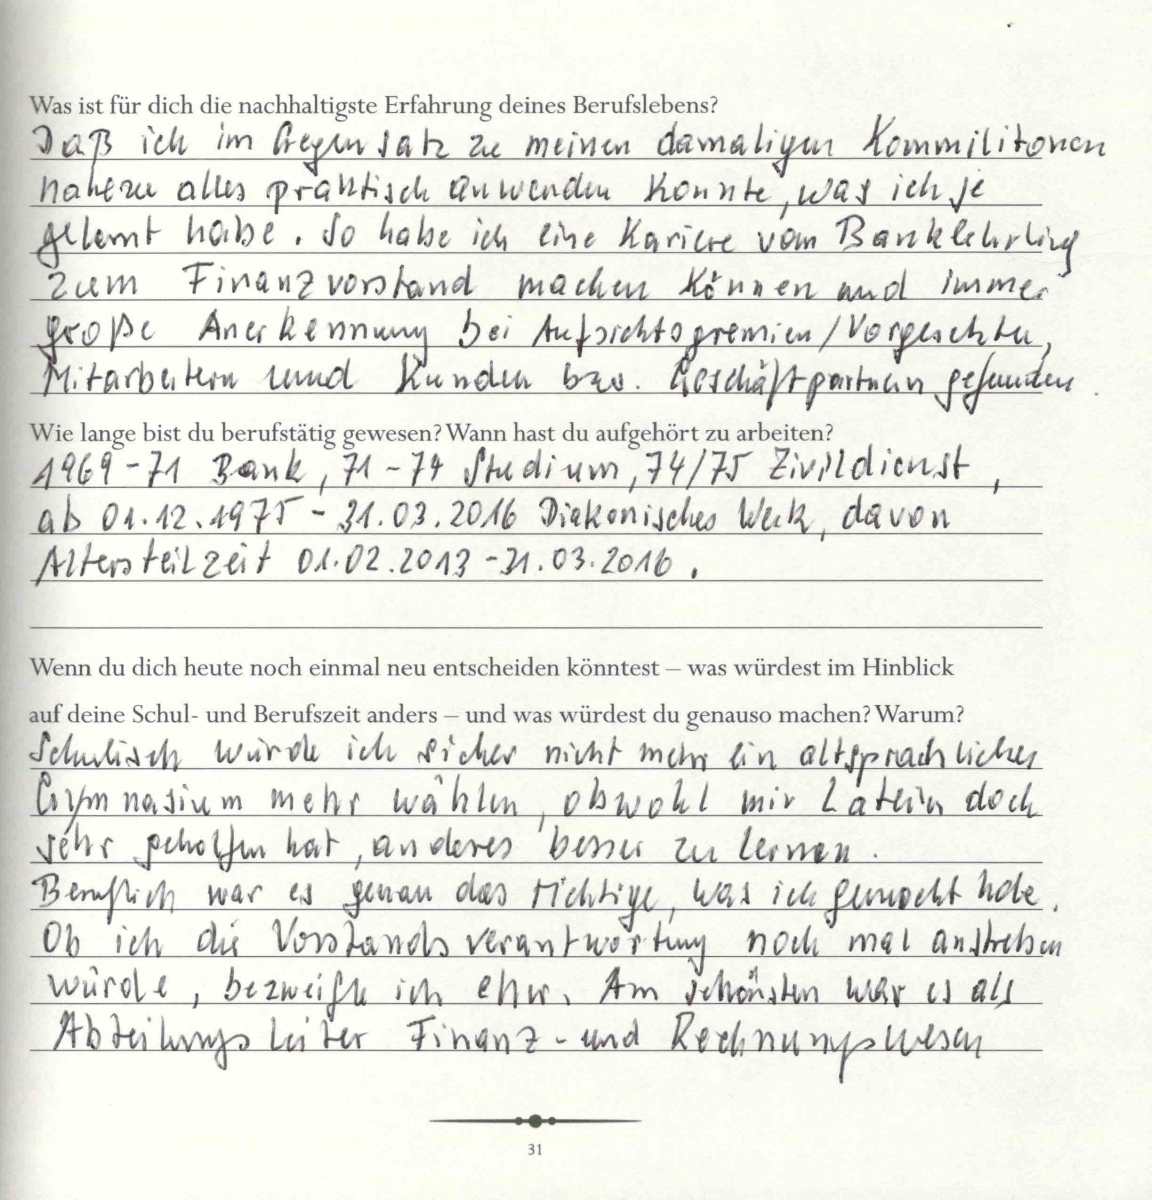 Was ist für dich die nachhaltigste Erfahrung deines Berufslebens?
Daß ich im Gegensatz zu meinen damaligen Kommilitonen
nahezu alles praktisch anwenden konnte, was ich je
gelernt habe. So habe ich eine Kariere vom Banklehrling
zum Finanzvorstand machen können und immer
große Anerkennung bei Aufsichtsgremien/Vorgesetzten,
Mitarbeitern und Kunden bzw. Geschäftpartnern gefunden.
Wie lange bist du berufstätig gewesen? Wann hast du aufgehört zu arbeiten?
1969-71 Bank, 71-74 Studium, 74/75 Zivildienst,
ab 01.12.1975 - 31.03.2016 Diakonisches Werk, davon
Altersteilzeit 01.02.2013 - 31.03.2016.
Wenn du dich heute noch einmal neu entscheiden könntest – was würdest im Hinblick
auf deine Schul- und Berufszeit anders – und was würdest du genauso machen? Warum?
Schulisch würde ich sicher nicht mehr ein altsprachliches
Gymnasium mehr wählen, obwohl mir Latein doch
sehr geholfen hat, anderes besser zu lernen.
Beruflich war es genau das richtige, was ich gemacht habe.
Ob ich die Vorstandsverantwortung noch mal anstreben
würde, bezweifle ich eher. Am schönsten war es als
Abteilungsleiter Finanz- und Rechnungswesen
31